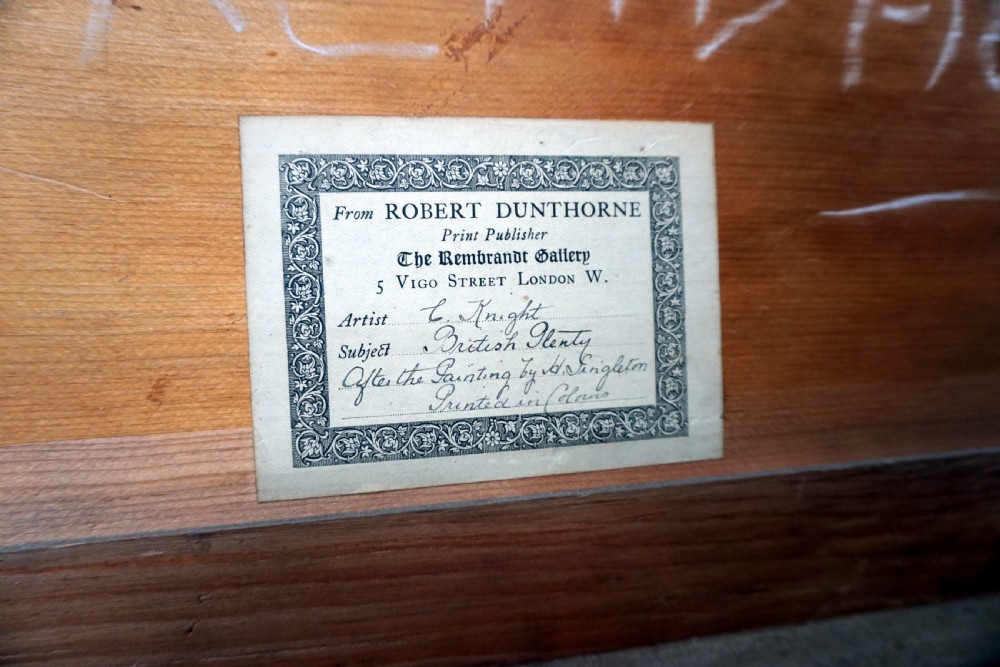 From ROBERT DUNTHORNE
Print Publisher
The Rembrandt Gallery
5 VIGO STREET LONDON W.
Artist C. Knight
Subject British Plenty
After the Painting by H. Singleton
Printed in Colours